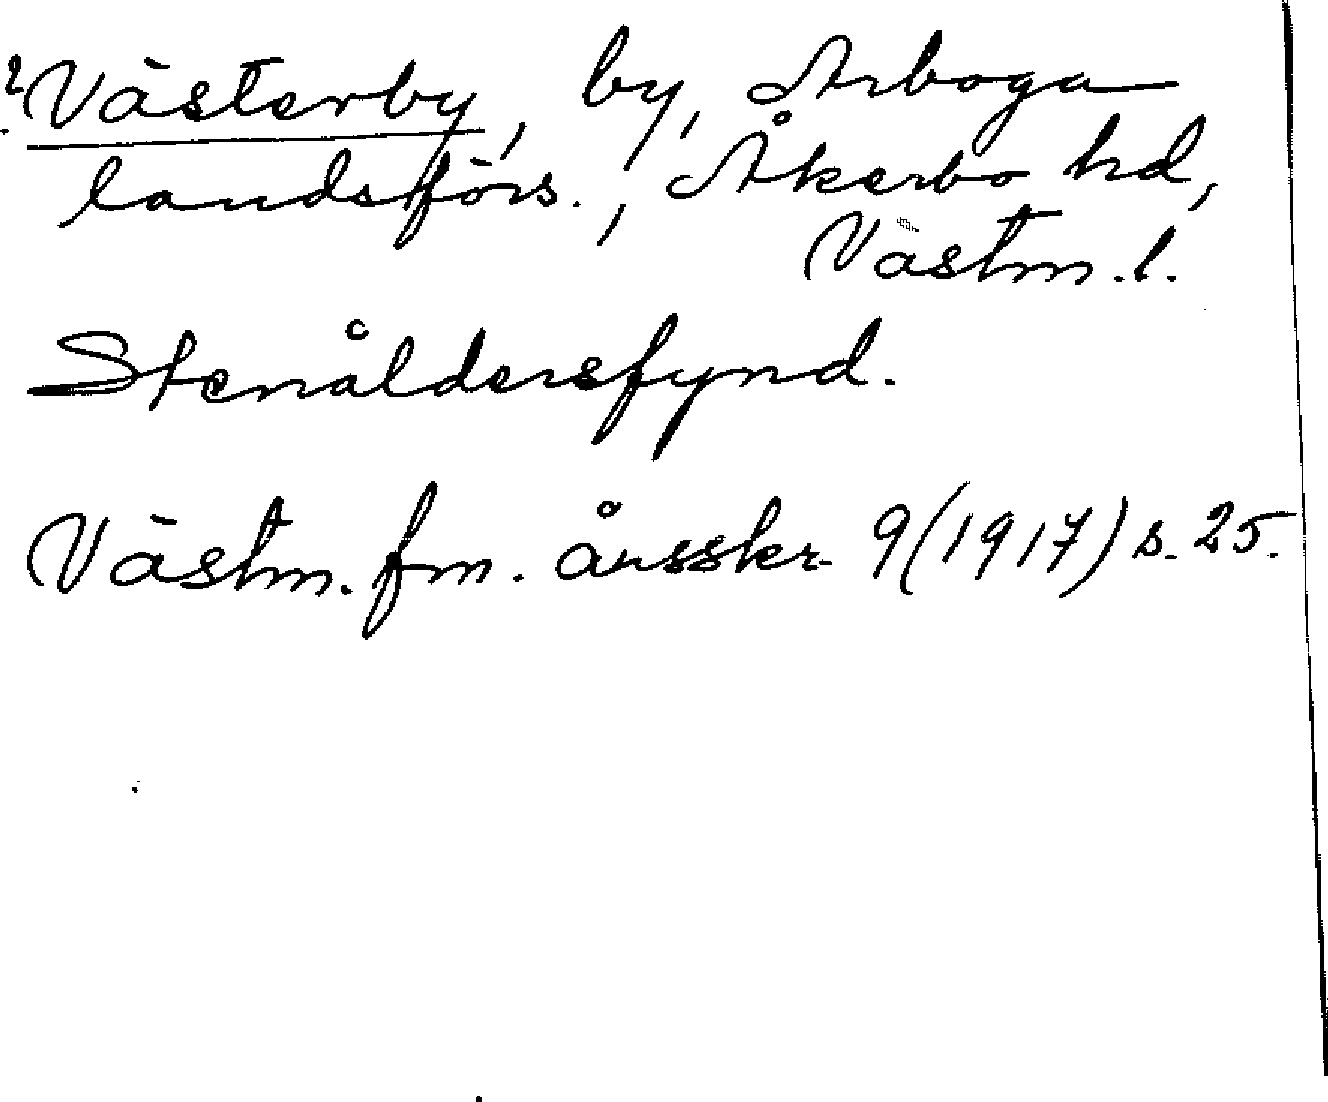 Västerby, by, Arboga
landsförs., Åkerbo hd,
Västm. l.
Stenåldersfynd.
Västm. fm. årsskr. 9 (1917) s. 25.